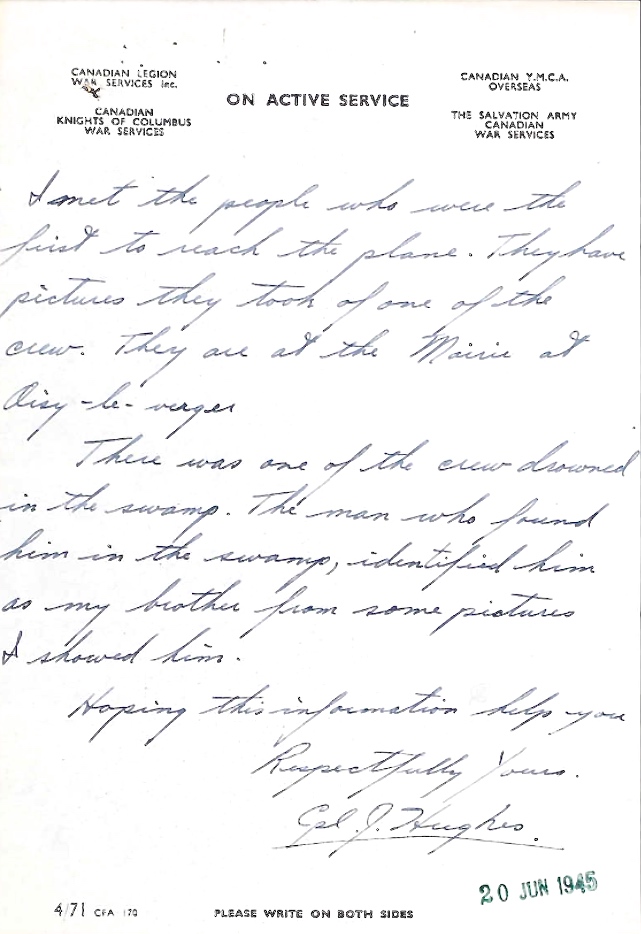 CANADIAN LEGION
WAR SERVICES Inc.
CANADIAN
KNIGHTS OF COLUMBUS
WAR SERVICES
ON ACTIVE SERVICE
CANADIAN Y.M.C.A.
OVERSEAS
THE SALVATION ARMY
CANADIAN
WAR SERVICES
I met the people who were the
first to reach the plane. They have
pictures they took of one of the
crew. They are at the Mairie at
Oisy-le-verger
There was one of the crew drowned
in the swamp. The man who found
him in the swamp, identified him
as my brother from some pictures
I showed him.
Hoping this information help you
Respectfully Yours.
Cpl J. Hughes.
20 JUN 1945
4/71 CFA 170
PLEASE WRITE ON BOTH SIDES